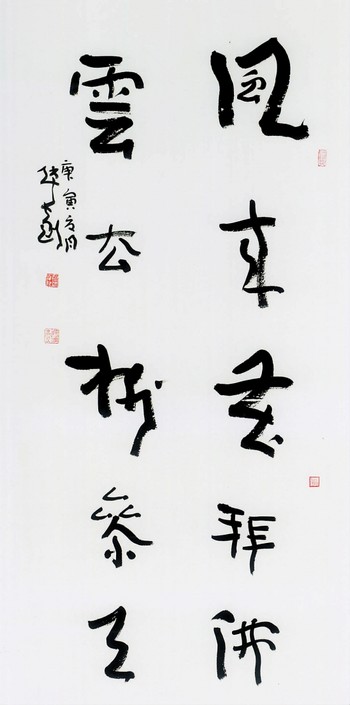 風來花拜佛
雲去樹參天
庚寅夏月